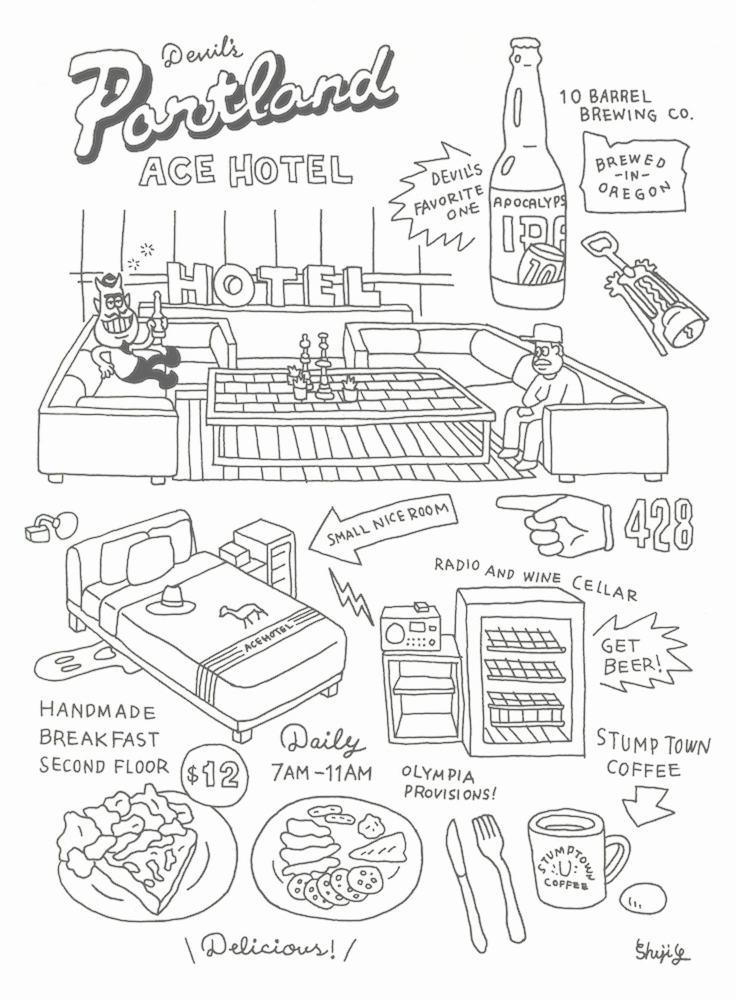 Devil's
Portland
ACE HOTEL
10 BARREL
BREWING CO.
BREWED
-IN-
OREGON
DEVIL'S
FAVORITE
ONE
APOCALYPS
IPA
10
HOTEL
SMALL NICE ROOM
428
RADIO AND WINE CELLAR
ACEHOTEL
GET
BEER!
HANDMADE
BREAKFAST
SECOND FLOOR
$12
Daily
7AM-11AM
OLYMPIA
PROVISIONS!
STUMP TOWN
COFFEE
STUMPTOWN
U
COFFEE
\Delicious!/